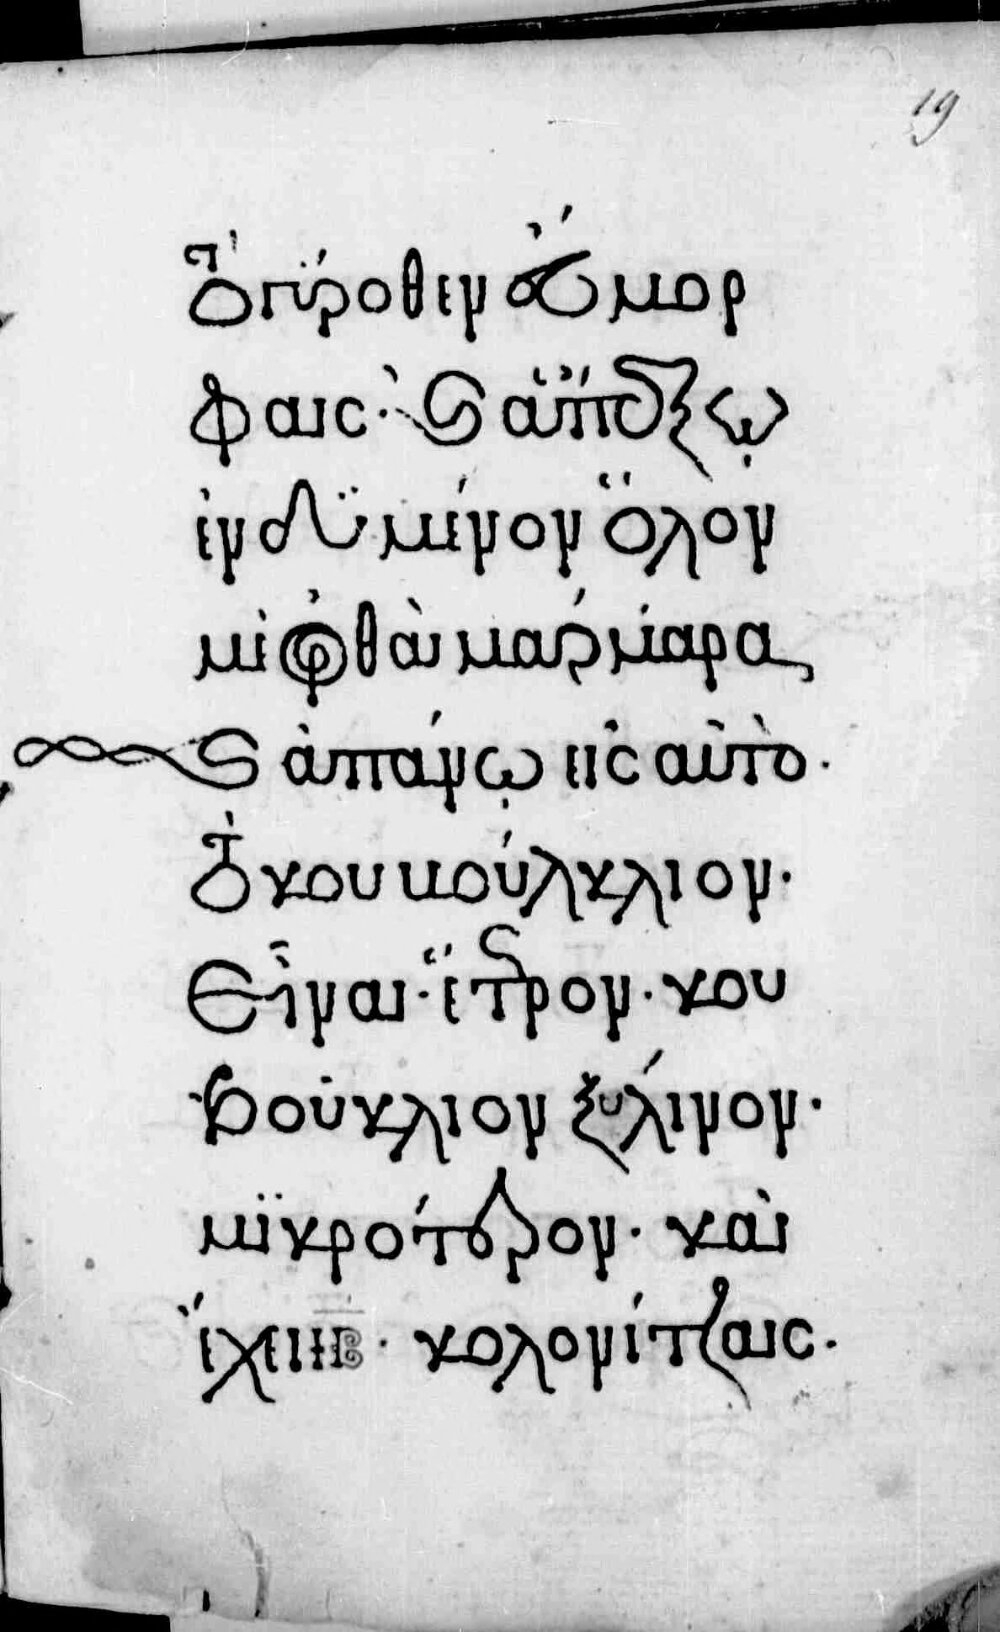 19
ὁγΰροθεν ὄμορ
φαις· ϛ ἀπόξω
ἐνδϋμένον ὅλον
μὲ φθὰι μαρμίαρα
ϛ ἀπάνω εἰς αὐτὸ·
τὸ κουκούλκλιον·
εἶναι· ἕτερον· κου
βούκλιον ξυλίνον·
μϊκρότερον· καὶ
ἔχει ιβ· κολονίτζαις·